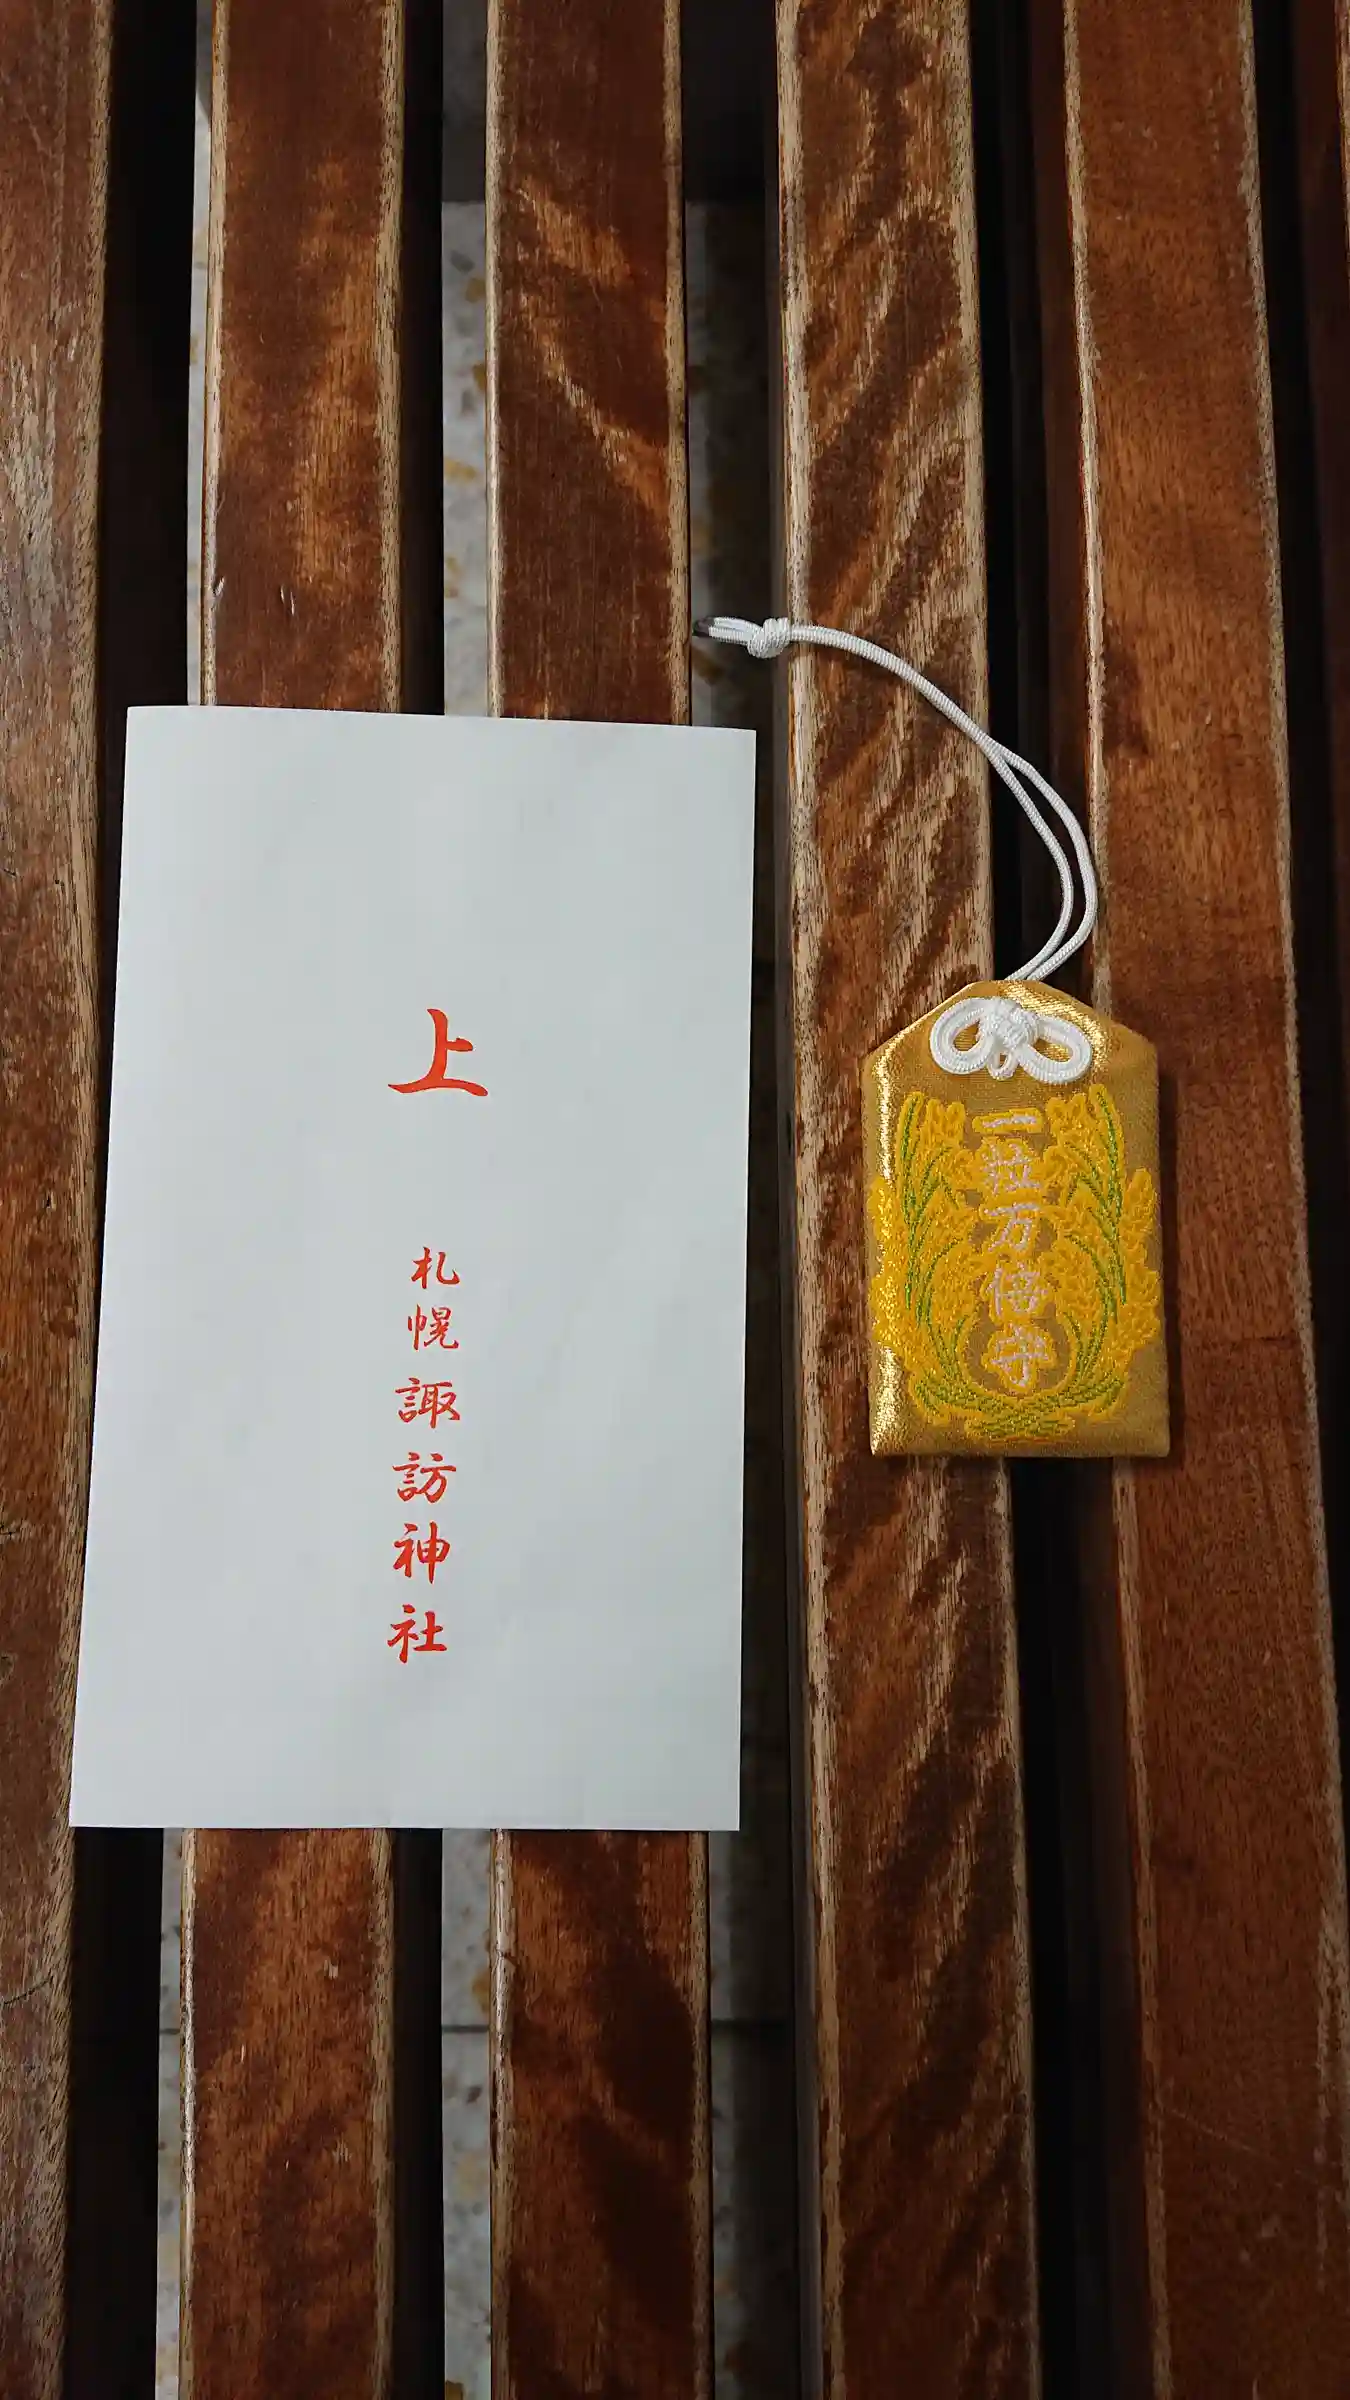 上
札幌諏訪神社
一粒万倍守